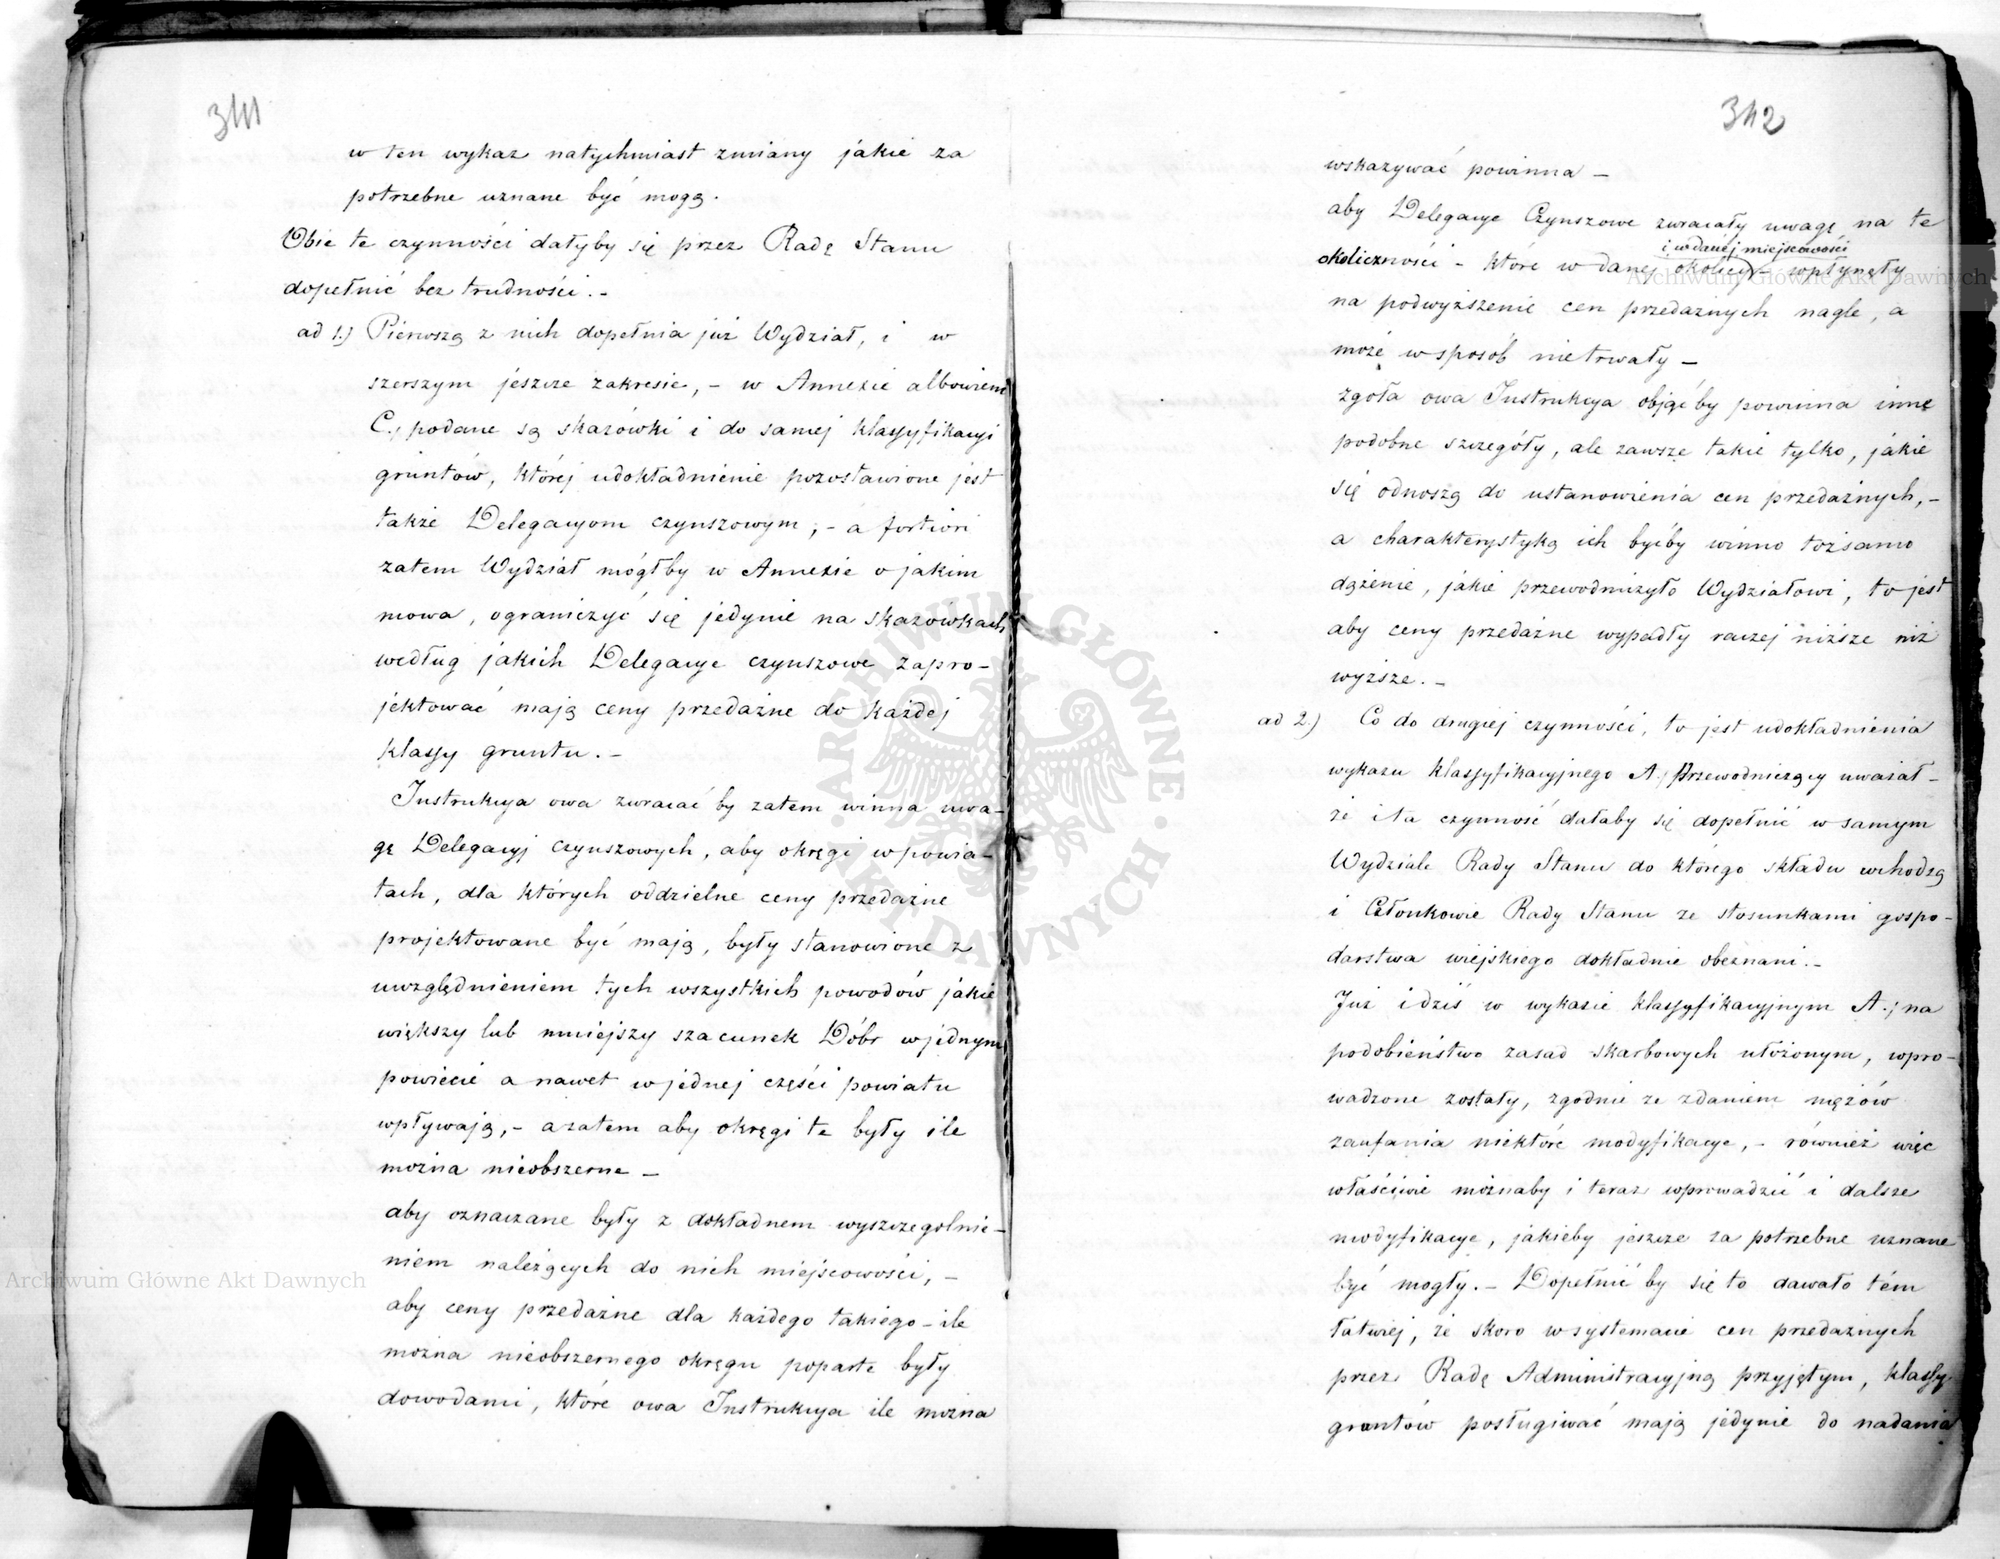 341
w ten wykaz natychmiast zmiany jakie za
potrzebne uznane być mogą.
Obie te czynności dałyby się przez Radę Stanu
dopełnić bez trudności. -
ad 1.) Pierwszą z nich dopełnia już Wydział, i w
szerszym jeszcze zakresie, - w Annexie albowiem
C., podane są skazówki i do samej klassyfikacyi
gruntów, której udokładnienie pozostawione jest
także Delegacyom czynszowym, - a fortiori
zatem Wydział mógłby w Annexie o jakim
mowa, ograniczyć się jedynie na skazówkach
według jakich Delegacye czynszowe zapro-
jektować mają ceny przedażne do każdej
klassy gruntu. -
Instrukcya owa zwracać by zatem winna uwa-
gę Delegacyj czynszowych, aby okręgi w powia-
tach, dla których oddzielne ceny przedażne
projektowane być mają, były stanowione z
uwzględnieniem tych wszystkich powodów jakie
większy lub mniejszy szacunek Dóbr w jednym
powiecie a nawet w jednej części powiatu
wpływają, - a zatem aby okręgi te były ile
można nieobszerne -
aby oznaczane były z dokładnem wyszczególnie-
niem należących do nich miejscowości, -
aby ceny przedażne dla każdego takiego - ile
można nieobszernego okręgu poparte były
dowodami, które owa Instrukcya ile można
342
wskazywać powinna -
aby Delegacye Czynszowe zwracały uwagę na te
i w danej miejscowości
okoliczności - które w danej okolicy - wpłynęły
na podwyższenie cen przedażnych nagle, a
może w sposób nietrwały -
zgoła owa Instrukcya objąć by powinna inne
podobne szczegóły, ale zawsze takie tylko, jakie
się odnoszą do ustanowienia cen przedażnych, -
a charakterystyką ich byćby winno tożsamo
dążenie, jakie przewodniczyło Wydziałowi, to jest
aby ceny przedażne wypadły raczej niższe niż
wyższe. -
ad 2.) Co do drugiej czynności, to jest udokładnienia
wykazu klassyfikacyjnego A., Przewodniczący uważał -
że i ta czynność dałaby się dopełnić w samym
Wydziale Rady Stanu do którego składu wchodzą
i Członkowie Rady Stanu ze stosunkami gospo-
darstwa wiejskiego dokładnie obeznani. -
Już i dziś w wykazie klassyfikacyjnym A.; na
podobieństwo zasad skarbowych ułożonym, wpro-
wadzone zostały, zgodnie ze zdaniem mężów
zaufania niektóre modyfikacye, - również więc
właściwie możnaby i teraz wprowadzić i dalsze
modyfikacye, jakieby jeszcze za potrzebne uznane
być mogły. - Dopełnić by się to dawało tém
łatwiej, że skoro w systemacie cen przedażnych
przez Radę Administracyjną przyjętym, klassy
gruntów posługiwać mają jedynie do nadania
Archiwum Główne Akt Dawnych
Archiwum Główne Akt Dawnych
ARCHIWUM GŁÓWNE AKT DAWNYCH